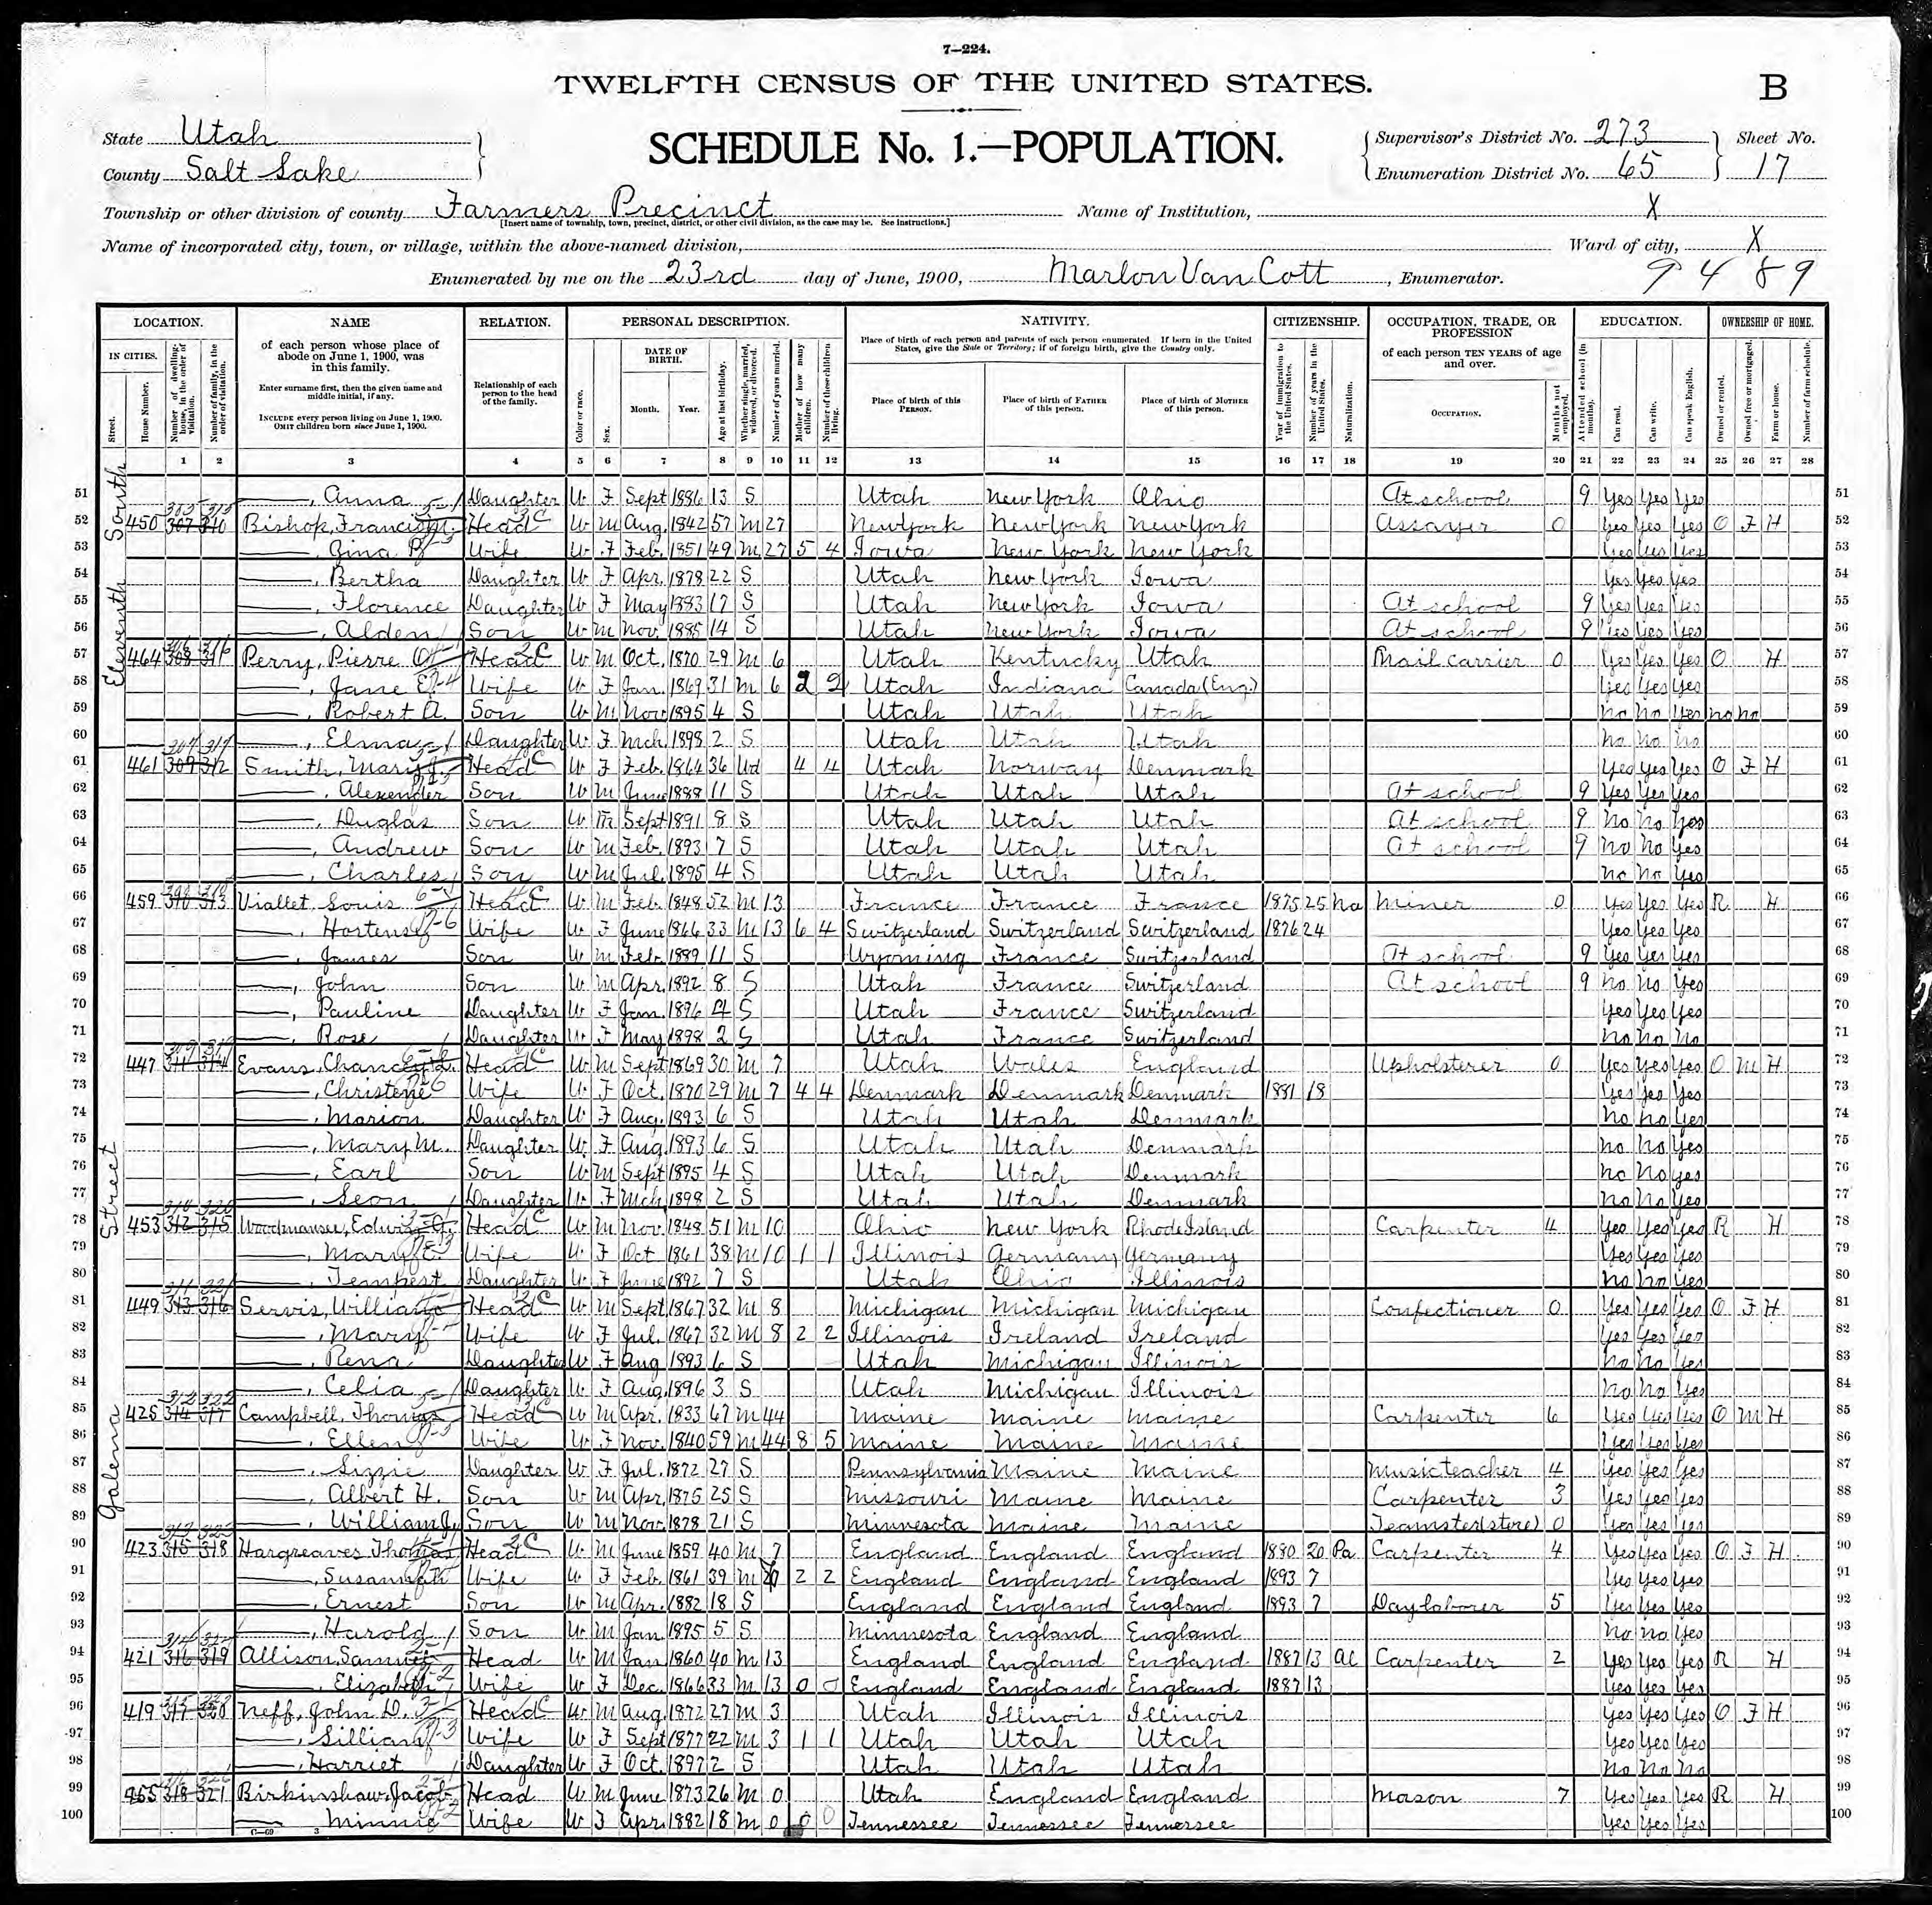 7—224.
TWELFTH CENSUS OF THE UNITED STATES.
B
State Utah
SCHEDULE No. 1.—POPULATION.
Supervisor's District No. 273
Sheet No.
County Salt Lake
Enumeration District No. 65
17
Township or other division of county Farmers Precinct
Name of Institution, X
[Insert name of township, town, precinct, district, or other civil division, as the case may be. See instructions.]
Name of incorporated city, town, or village, within the above-named division,
Ward of city, X
Enumerated by me on the 23rd day of June, 1900, Marlon Van Cott, Enumerator.
9 4 89
LOCATION. NAME RELATION. PERSONAL DESCRIPTION. NATIVITY. CITIZENSHIP. OCCUPATION, TRADE, OR PROFESSION EDUCATION. OWNERSHIP OF HOME.
IN CITIES. Street. House Number. Number of dwelling-house, in the order of visitation. Number of family, in the order of visitation.
of each person whose place of abode on June 1, 1900, was in this family.
Enter surname first, then the given name and middle initial, if any.
INCLUDE every person living on June 1, 1900. OMIT children born since June 1, 1900.
Relationship of each person to the head of the family.
Color or race. Sex. DATE OF BIRTH. Month. Year. Age at last birthday. Whether single, married, widowed, or divorced. Number of years married. Mother of how many children. Number of these children living.
Place of birth of each person and parents of each person enumerated. If born in the United States, give the State or Territory; if of foreign birth, give the Country only.
Place of birth of this PERSON. Place of birth of FATHER of this person. Place of birth of MOTHER of this person.
Year of immigration to the United States. Number of years in the United States. Naturalization.
of each person TEN YEARS of age and over.
OCCUPATION. Months not employed.
Attended school (in months). Can read. Can write. Can speak English.
Owned or rented. Owned free or mortgaged. Farm or house. Number of farm schedule.
1 2 3 4 5 6 7 8 9 10 11 12 13 14 15 16 17 18 19 20 21 22 23 24 25 26 27 28
Eleventh South
Galena Street
51 —, Anna Daughter W F Sept 1886 13 S Utah New York Ohio At school 9 Yes Yes Yes 51
52 450 307 310 Bishop, Francis M. Head W M Aug. 1842 57 M 27 New York New York New York Assayer 0 Yes Yes Yes O F H 52
53 —, Zina P. Wife W F Feb. 1851 49 M 27 5 4 Iowa New York New York Yes Yes Yes 53
54 —, Bertha Daughter W F Apr. 1878 22 S Utah New York Iowa Yes Yes Yes 54
55 —, Florence Daughter W F May 1883 17 S Utah New York Iowa At school 9 Yes Yes Yes 55
56 —, Alden Son W M Nov. 1885 14 S Utah New York Iowa At school 9 Yes Yes Yes 56
57 464 308 311 Perry, Pierre O. Head W M Oct. 1870 29 M 6 Utah Kentucky Utah Mail carrier 0 Yes Yes Yes O H 57
58 —, Jane E. Wife W F Jan. 1869 31 M 6 2 2 Utah Indiana Canada (Eng.) Yes Yes Yes 58
59 —, Robert A. Son W M Nov 1895 4 S Utah Utah Utah no no Yes no no 59
60 —, Elma Daughter W F Mch. 1898 2 S Utah Utah Utah no no no 60
61 461 309 312 Smith, Mary J. Head W F Feb. 1864 36 Wd 4 4 Utah Norway Denmark Yes Yes Yes O F H 61
62 —, Alexender Son W M June 1888 11 S Utah Utah Utah At school 9 Yes Yes Yes 62
63 —, Duglas Son W M Sept 1891 8 S Utah Utah Utah At school 9 no no Yes 63
64 —, Andrew Son W M Feb. 1893 7 S Utah Utah Utah At school 9 no no Yes 64
65 —, Charles Son W M Jul. 1895 4 S Utah Utah Utah no no Yes 65
66 459 310 313 Viallet, Louis Head W M Feb. 1848 52 M 13 France France France 1875 25 Na Miner 0 Yes Yes Yes R H 66
67 —, Hortense Wife W F June 1866 33 M 13 6 4 Switzerland Switzerland Switzerland 1876 24 Yes Yes Yes 67
68 —, James Son W M Feb. 1889 11 S Wyoming France Switzerland At school 9 Yes Yes Yes 68
69 —, John Son W M Apr. 1892 8 S Utah France Switzerland At school 9 no no Yes 69
70 —, Pauline Daughter W F Jan. 1896 4 S Utah France Switzerland Yes Yes Yes 70
71 —, Rose Daughter W F May 1898 2 S Utah France Switzerland no no no 71
72 447 311 314 Evans, Chancey Head W M Sept 1869 30 M 7 Utah Wales England Upholsterer 0 Yes Yes Yes O M H 72
73 —, Christene Wife W F Oct. 1870 29 M 7 4 4 Denmark Denmark Denmark 1881 18 Yes Yes Yes 73
74 —, Marion Daughter W F Aug. 1893 6 S Utah Utah Denmark no no Yes 74
75 —, Mary M. Daughter W F Aug. 1893 6 S Utah Utah Denmark no no Yes 75
76 —, Earl Son W M Sept 1895 4 S Utah Utah Denmark no no Yes 76
77 —, Leon Daughter W F Mch. 1898 2 S Utah Utah Denmark no no Yes 77
78 453 312 315 Woodmansee, Edwin Head W M Nov. 1848 51 M 10 Ohio New York Rhode Island Carpenter 4 Yes Yes Yes R H 78
79 —, Mary E. Wife W F Oct 1861 38 M 10 1 1 Illinois Germany Germany Yes Yes Yes 79
80 —, Tempest Daughter W F June 1892 7 S Utah Ohio Illinois no no Yes 80
81 449 313 316 Servis, William Head W M Sept 1867 32 M 8 Michigan Michigan Michigan Confectioner 0 Yes Yes Yes O F H 81
82 —, Mary Wife W F Jul. 1867 32 M 8 2 2 Illinois Ireland Ireland Yes Yes Yes 82
83 —, Rena Daughter W F Aug 1893 6 S Utah Michigan Illinois no no Yes 83
84 —, Celia Daughter W F Aug. 1896 3 S Utah Michigan Illinois no no Yes 84
85 425 314 317 Campbell, Thomas Head W M Apr. 1833 67 M 44 Maine Maine Maine Carpenter 6 Yes Yes Yes O M H 85
86 —, Ellen Wife W F Nov. 1840 59 M 44 8 5 Maine Maine Maine Yes Yes Yes 86
87 —, Lizzie Daughter W F Jul. 1872 27 S Pennsylvania Maine Maine Music teacher 4 Yes Yes Yes 87
88 —, Albert H. Son W M Apr. 1875 25 S Missouri Maine Maine Carpenter 3 Yes Yes Yes 88
89 —, William J. Son W M Nov. 1878 21 S Minnesota Maine Maine Teamster (store) 0 Yes Yes Yes 89
90 423 315 318 Hargreaves, Thomas Head W M June 1859 40 M 7 England England England 1880 20 Pa Carpenter 4 Yes Yes Yes O F H 90
91 —, Susannah Wife W F Feb. 1861 39 M 7 2 2 England England England 1893 7 Yes Yes Yes 91
92 —, Ernest Son W M Apr. 1882 18 S England England England 1893 7 Day laborer 5 Yes Yes Yes 92
93 —, Harold Son W M Jan 1895 5 S Minnesota England England no no Yes 93
94 421 316 319 Allison, Samuel Head W M Jan 1860 40 M 13 England England England 1887 13 Al Carpenter 2 Yes Yes Yes R H 94
95 —, Elizabeth Wife W F Dec. 1866 33 M 13 0 0 England England England 1887 13 Yes Yes Yes 95
96 419 317 320 Neff, John D. Head W M Aug 1872 27 M 3 Utah Illinois Illinois Yes Yes Yes O F H 96
97 —, Lillian Wife W F Sept 1877 22 M 3 1 1 Utah Utah Utah Yes Yes Yes 97
98 —, Harriet Daughter W F Oct. 1897 2 S Utah Utah Utah no no no 98
99 455 318 321 Birkinshaw, Jacob Head W M June 1873 26 M 0 Utah England England Mason 7 Yes Yes Yes R H 99
100 —, Minnie Wife W F Apr. 1882 18 M 0 0 0 Tennessee Tennessee Tennessee Yes Yes Yes 100